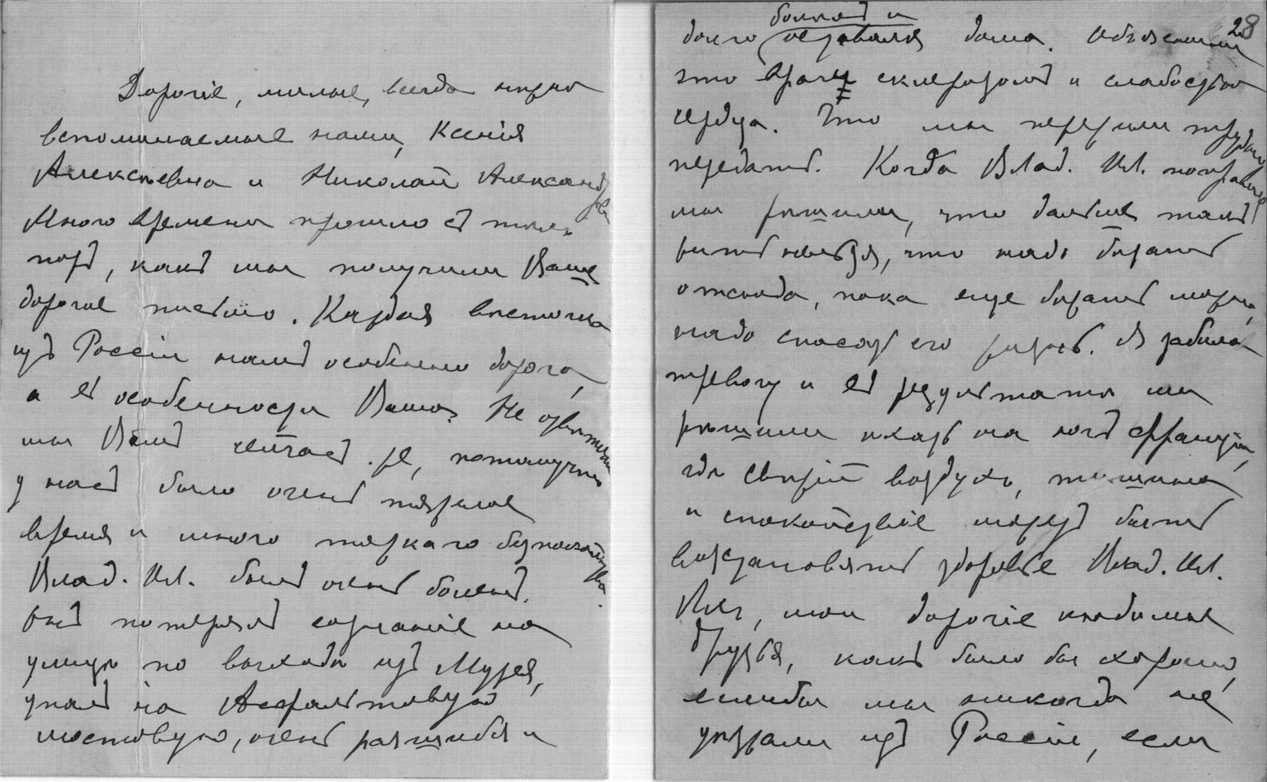 Дорогіе, милые, всегда нѣжно
вспоминаемые нами, Ксенія
Алексѣевна и Николай Александр
Много времени прошло съ тѣхъ
поръ, какъ мы получили Ваше
дорогое письмо. Каждая весточка
изъ Россіи намъ особенно дорога,
а въ особенности Ваша. Не отвѣтили
мы Вамъ сейчас же, потому что
у насъ было очень тяжелое
время и много тяжкаго безпокойства.
Влад. Ил. былъ очень боленъ.
Онъ потерялъ сознаніе на
улицѣ по выходѣ изъ Музея,
упалъ на Асфальтовую
мостовую, очень расшибся и
28
болѣлъ и
долго оставался дома. Объяснили
это врачи склерозомъ и слабостью
сердца. Что мы пережили трудно
передать. Когда Влад. Ил. поправился
мы рѣшили, что дальше такъ
жить нельзя, что надо бѣжать
отсюда, пока еще бѣжать можно,
надо спасать его жизнь. Я забила
тревогу и въ результатѣ мы
рѣшили ѣхать на югъ Франціи,
гдѣ свѣжій воздухъ, тишина
и спокойствіе можетъ быть
возстановятъ здоровье Влад. Ил.
Ахъ, мои дорогіе любимые
друзья, какъ было бы хорошо,
если бы мы никогда не
уѣзжали изъ Россіи, если